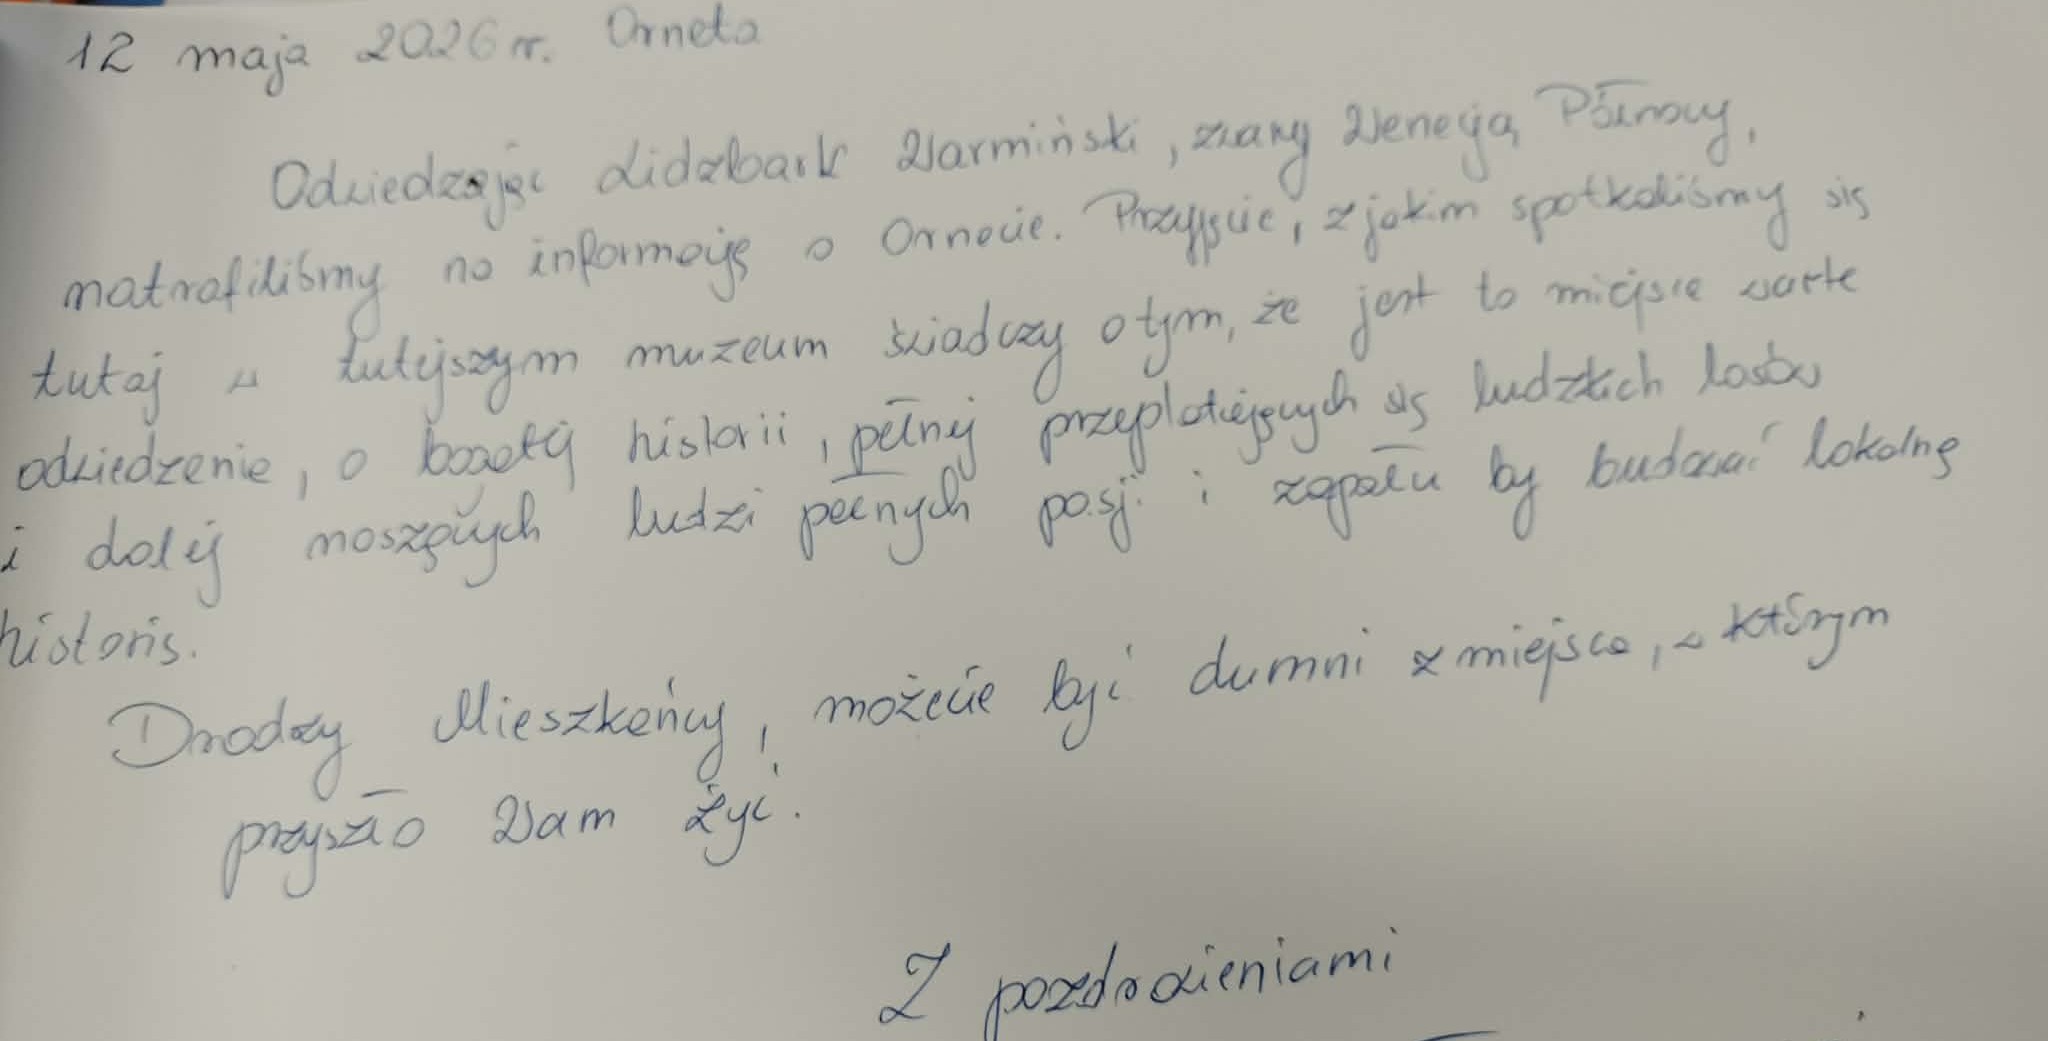 12 maja 2026 r. Orneta
Odwiedzając Lidzbark Warmiński, zwany Wenecją Północy,
natrafiliśmy na informację o Ornecie. Przyjęcie, z jakim spotkaliśmy się
tutaj w tutejszym muzeum świadczy o tym, że jest to miejsce warte
odwiedzenie, o bogatej historii, pełnej przeplatających się ludzkich losów
i dalej noszących ludzi pełnych pasji i zapału by budować lokalną
historię.
Drodzy Mieszkańcy, możecie być dumni z miejsca, w którym
przyszło Wam żyć.
Z pozdrowieniami